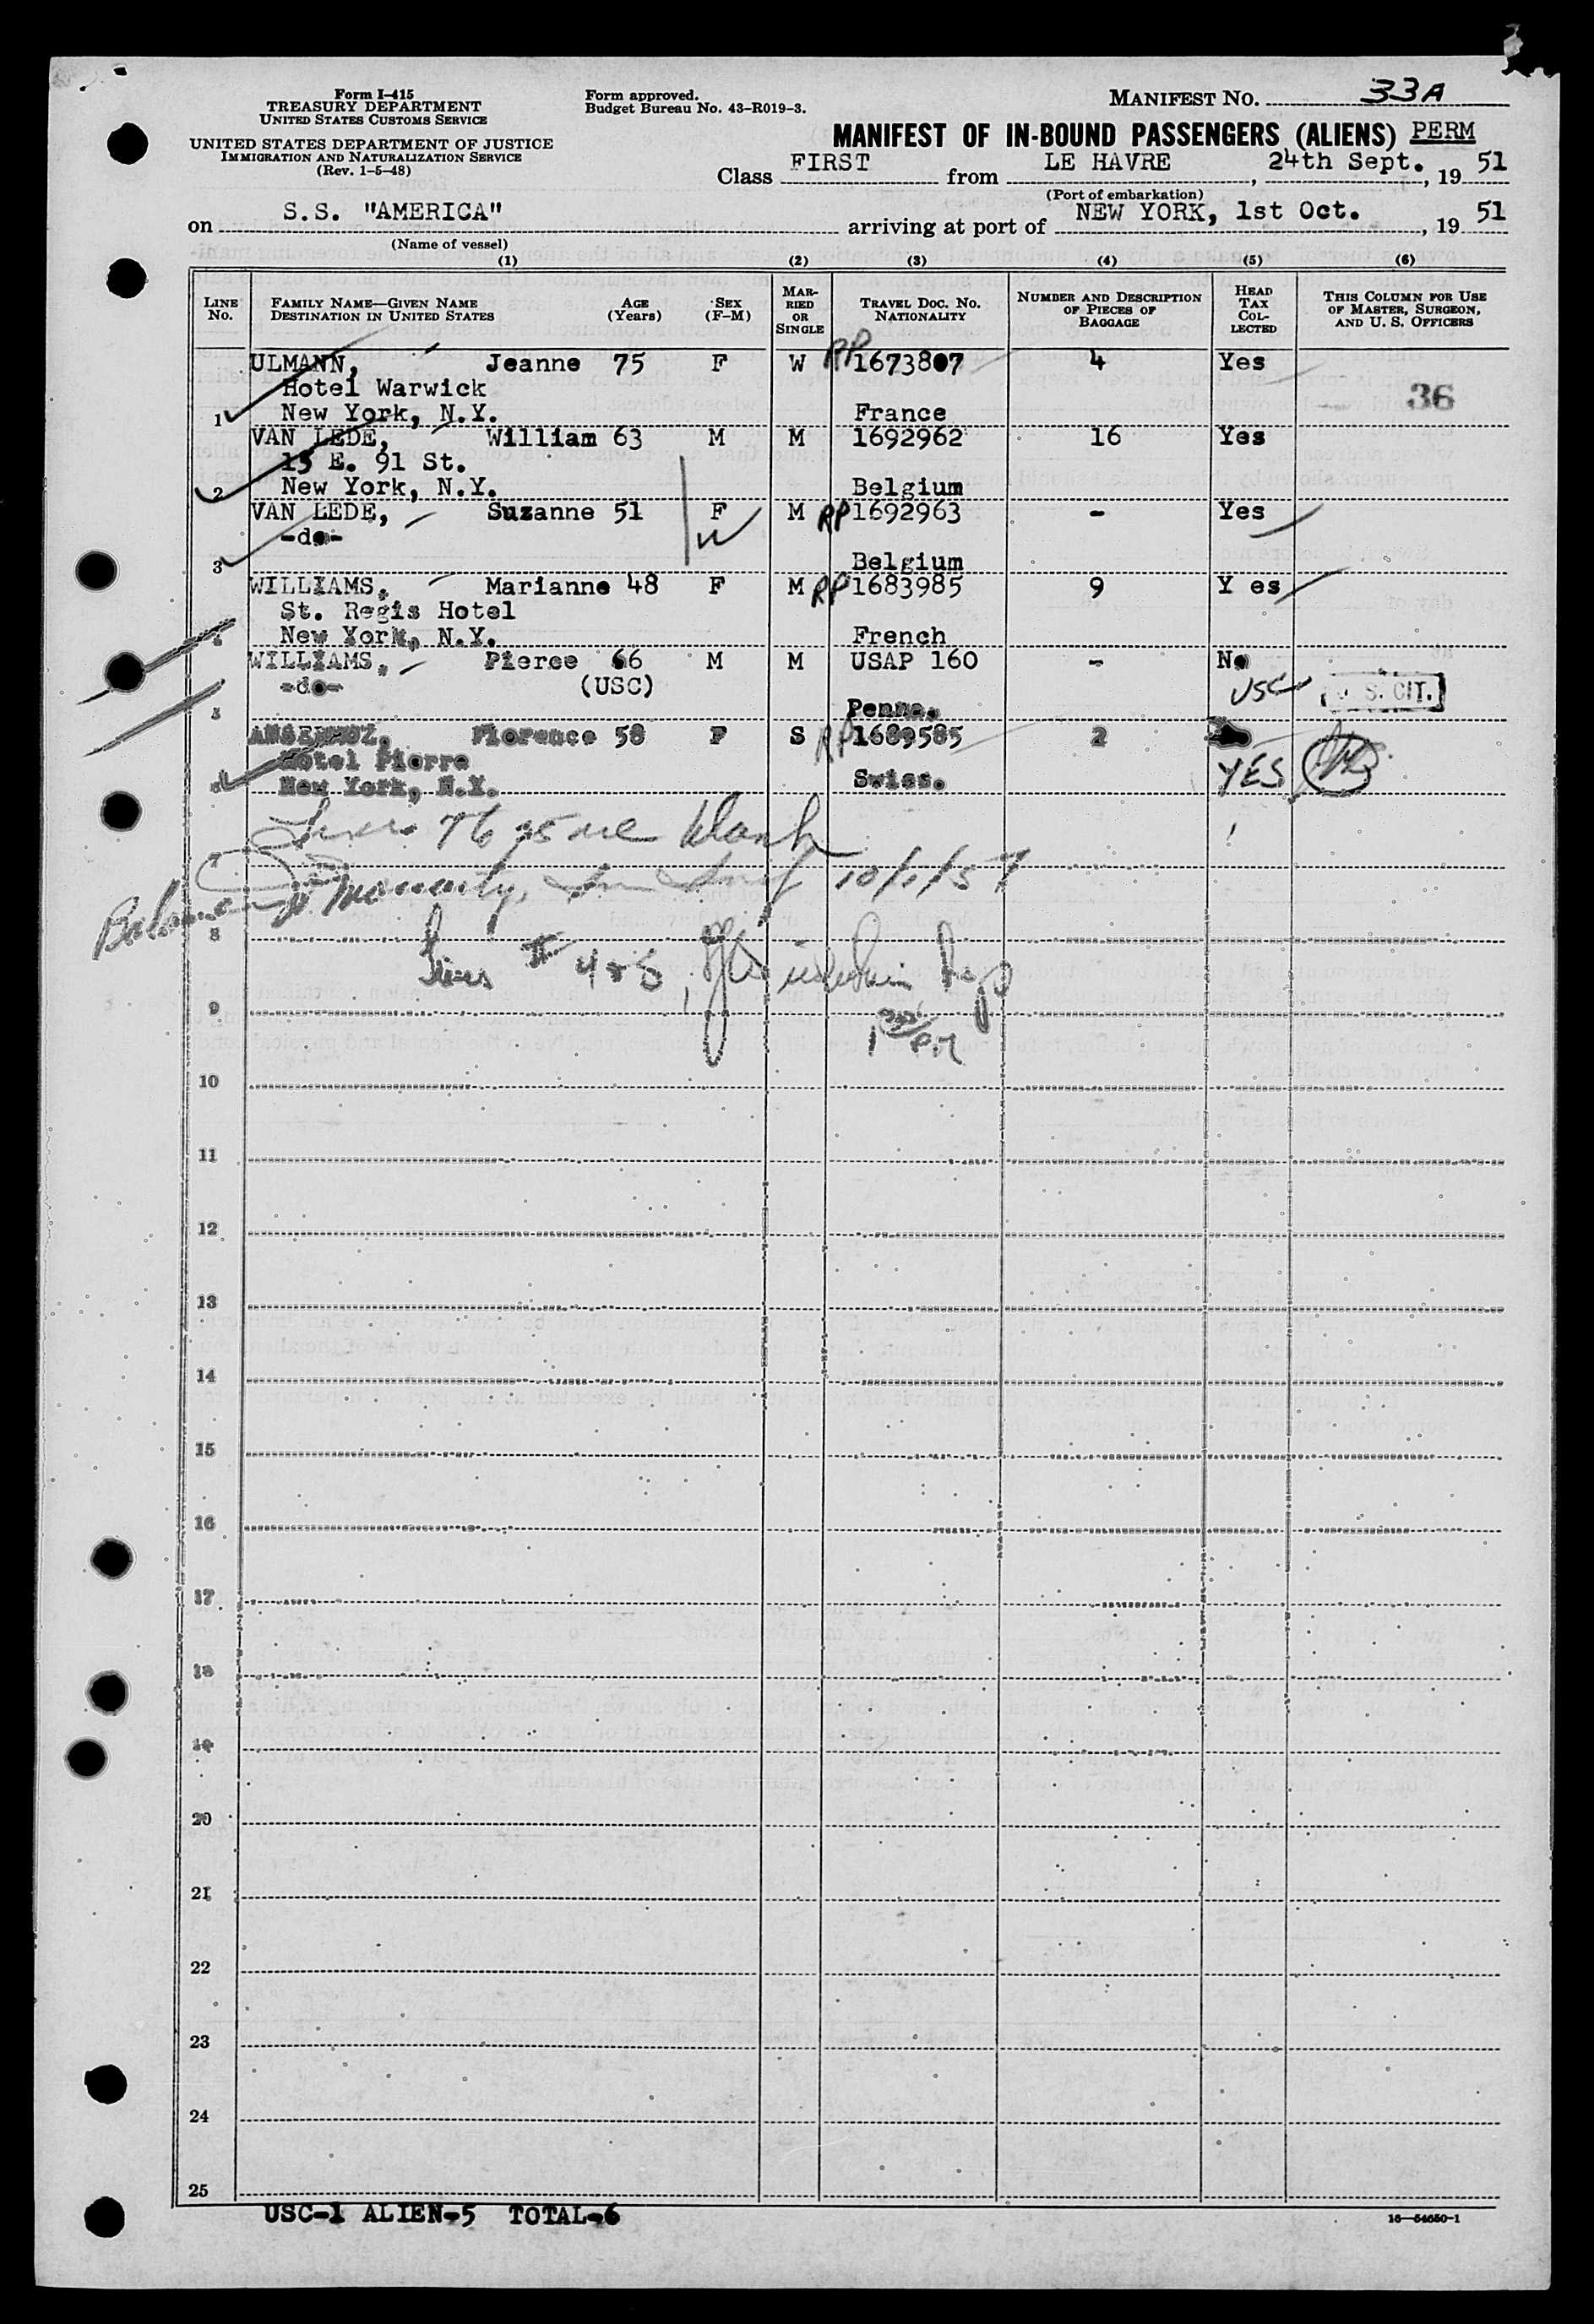 Form I-415
TREASURY DEPARTMENT
UNITED STATES CUSTOMS SERVICE
UNITED STATES DEPARTMENT OF JUSTICE
IMMIGRATION AND NATURALIZATION SERVICE
(Rev. 1-5-48)
Form approved.
Budget Bureau No. 43-R019-3.
MANIFEST No. 33A
MANIFEST OF IN-BOUND PASSENGERS (ALIENS) PERM
Class FIRST from LE HAVRE, 24th Sept., 1951
(Port of embarkation)
on S.S. "AMERICA" arriving at port of NEW YORK, 1st Oct., 1951
(Name of vessel)
(1) (2) (3) (4) (5) (6)
LINE No. FAMILY NAME—GIVEN NAME DESTINATION IN UNITED STATES AGE (Years) SEX (F-M) MARRIED OR SINGLE TRAVEL DOC. No. NATIONALITY NUMBER AND DESCRIPTION OF PIECES OF BAGGAGE HEAD TAX COLLECTED THIS COLUMN FOR USE OF MASTER, SURGEON, AND U. S. OFFICERS
ULMANN, Jeanne 75 F W RP 1673807 4 Yes
Hotel Warwick 36
1 New York, N.Y. France
VAN LEDE, William 63 M M 1692962 16 Yes
15 E. 91 St.
2 New York, N.Y. Belgium
VAN LEDE, Suzanne 51 F M RP 1692963 - Yes
-do-
3 Belgium
WILLIAMS, Marianne 48 F M RP 1683985 9 Y es
St. Regis Hotel
4 New York, N.Y. French
WILLIAMS, Pierce 66 M M USAP 160 - No
-do- (USC) USC U. S. CIT.
5 Penna.
Florence 58 F S RP 1689585 2
Hotel Pierre YES
6 New York, N.Y. Swiss.
blank
7
10/1/51
8
Lines
9
10
11
12
13
14
15
16
17
18
19
20
21
22
23
24
25
USC-1 ALIEN-5 TOTAL-6
16—54650-1